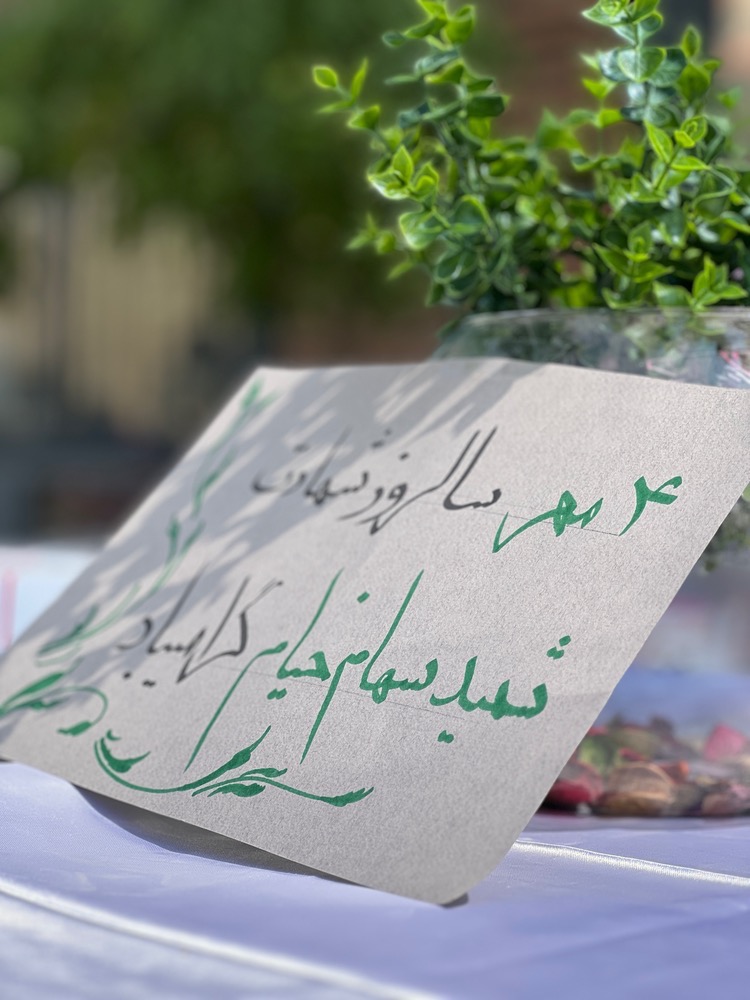 ۴ مهر سالروز شهادت
شهید سهام خیام گرامیباد